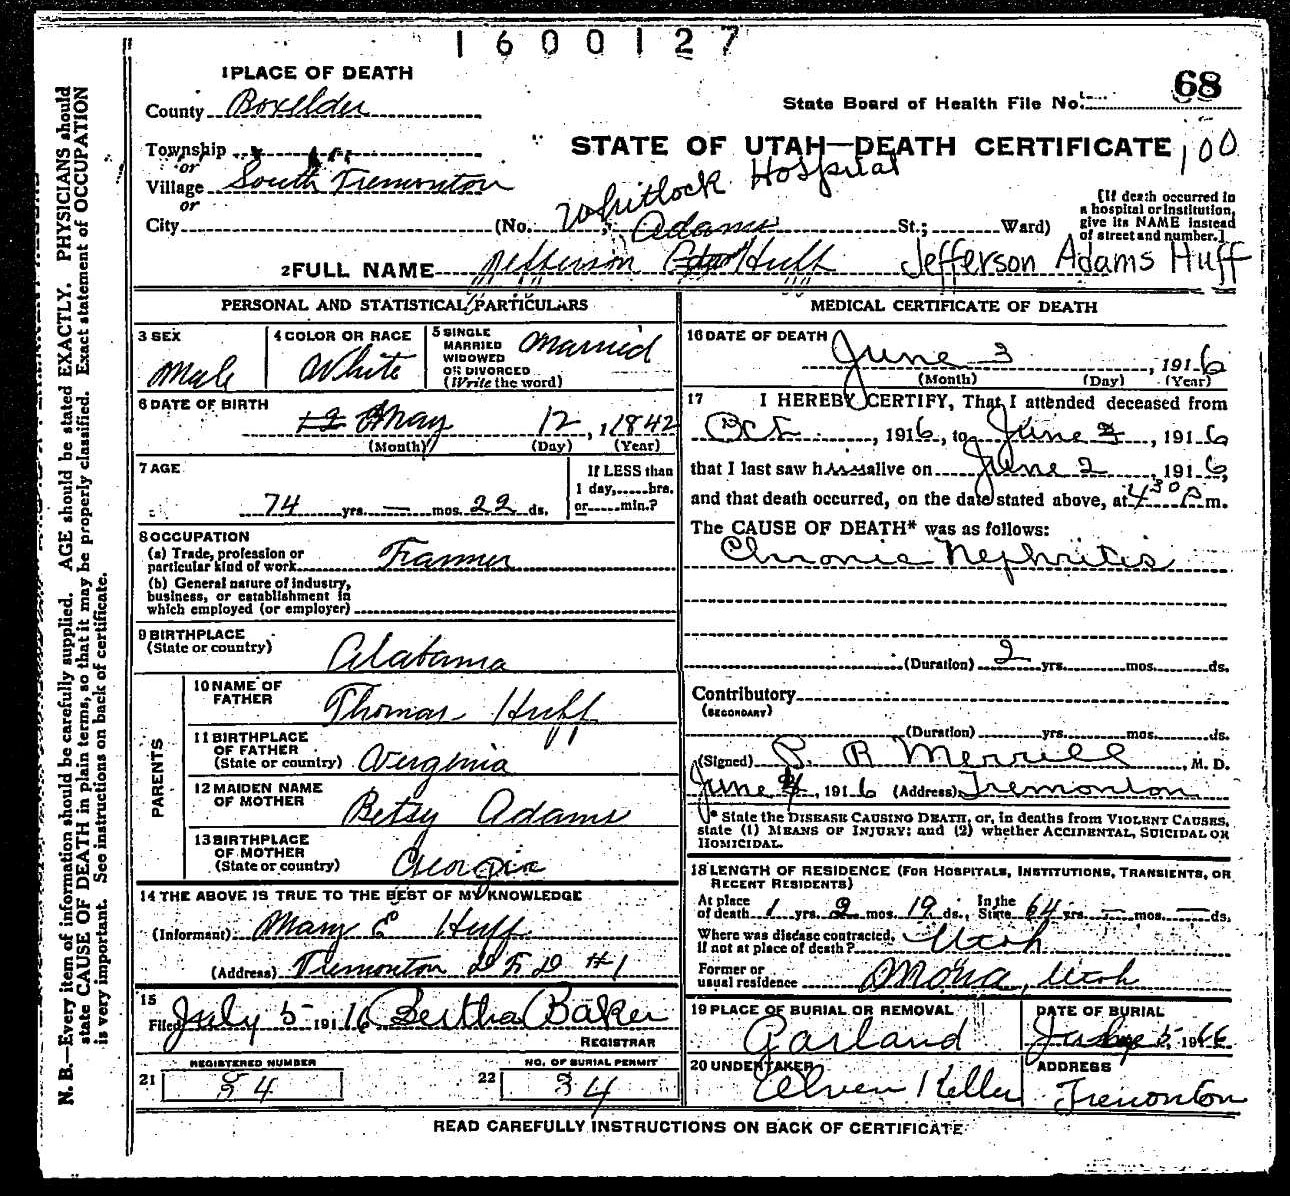 1600127
1 PLACE OF DEATH
68
County Boxelder
State Board of Health File No.
Township
STATE OF UTAH—DEATH CERTIFICATE 100
or
Village South Tremonton
Whitlock Hospital
or
[If death occurred in
a hospital or institution,
give its NAME instead
of street and number.]
City (No. St.; Ward)
Adams
2 FULL NAME Jefferson Huff Jefferson Adams Huff
PERSONAL AND STATISTICAL PARTICULARS
3 SEX
Male
4 COLOR OR RACE
White
5 SINGLE
MARRIED
WIDOWED
OR DIVORCED
(Write the word)
Married
6 DATE OF BIRTH
May 12, 1842
(Month) (Day) (Year)
7 AGE
74 yrs. — mos. 22 ds.
If LESS than
1 day, hrs.
or min.?
8 OCCUPATION
(a) Trade, profession or
particular kind of work Farmer
(b) General nature of industry,
business, or establishment in
which employed (or employer)
9 BIRTHPLACE
(State or country) Alabama
PARENTS
10 NAME OF
FATHER Thomas Huff
11 BIRTHPLACE
OF FATHER
(State or country) Virginia
12 MAIDEN NAME
OF MOTHER Betsy Adams
13 BIRTHPLACE
OF MOTHER
(State or country) Georgia
14 THE ABOVE IS TRUE TO THE BEST OF MY KNOWLEDGE
(Informant) Mary E Huff
(Address) Tremonton #1
15
Filed July 5 1916 Bertha Baker
REGISTRAR
REGISTERED NUMBER
21 34
NO. OF BURIAL PERMIT
22 34
MEDICAL CERTIFICATE OF DEATH
16 DATE OF DEATH
June 3, 1916
(Month) (Day) (Year)
17 I HEREBY CERTIFY, That I attended deceased from
Oct, 1916, to June, 1916
that I last saw him alive on June 2, 1916,
and that death occurred, on the date stated above, at 4 30 P m.
The CAUSE OF DEATH* was as follows:
Chronic Nephritis
(Duration) 2 yrs. mos. ds.
Contributory
(SECONDARY)
(Duration) yrs. mos. ds.
(Signed) R Merrill, M. D.
June, 1916 (Address) Tremonton
* State the DISEASE CAUSING DEATH, or, in deaths from VIOLENT CAUSES,
state (1) MEANS OF INJURY; and (2) whether ACCIDENTAL, SUICIDAL OR
HOMICIDAL.
18 LENGTH OF RESIDENCE (FOR HOSPITALS, INSTITUTIONS, TRANSIENTS, OR
RECENT RESIDENTS)
At place
of death 1 yrs. 2 mos. 19 ds., In the
State 64 yrs. — mos. — ds.
Where was disease contracted,
If not at place of death? Utah
Former or
usual residence Mona, Utah
19 PLACE OF BURIAL OR REMOVAL
Garland
DATE OF BURIAL
5, 19
20 UNDERTAKER
Keller
ADDRESS
Tremonton
READ CAREFULLY INSTRUCTIONS ON BACK OF CERTIFICATE
N. B.—Every item of information should be carefully supplied. AGE should be stated EXACTLY. PHYSICIANS should
state CAUSE OF DEATH in plain terms, so that it may be properly classified. Exact statement of OCCUPATION
is very important. See instructions on back of certificate.